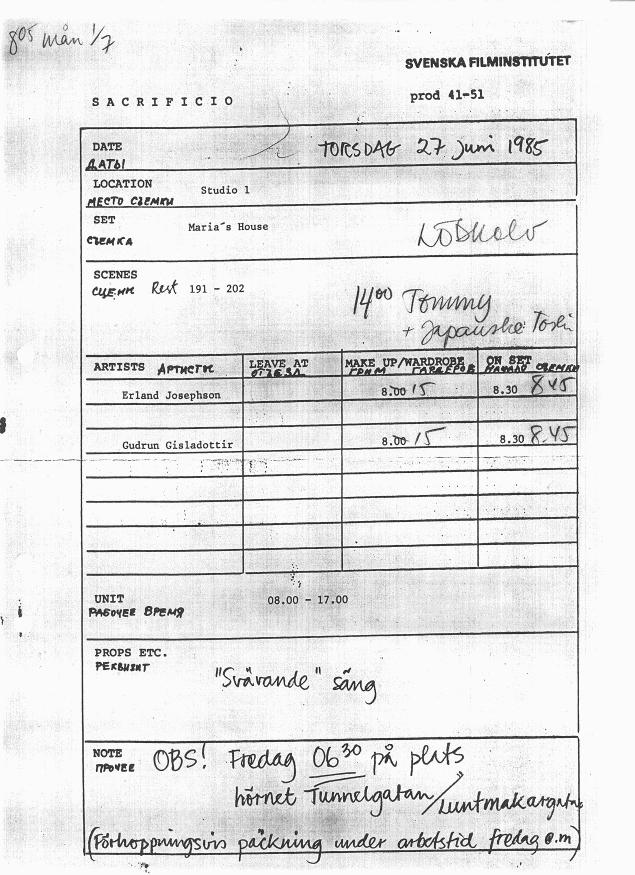 8⁰⁵ mån 1/7
SVENSKA FILMINSTITUTET
SACRIFICIO
prod 41-51
DATE TORSDAG 27 juni 1985
ДАТЫ
LOCATION Studio 1
МЕСТО СЪЕМКИ
SET Maria´s House
СЪЕМКА
SCENES
СЦЕНИ Rest 191 - 202
14⁰⁰ Tommy
+ Japanska
ARTISTS АРТИСТЫ LEAVE AT MAKE UP/WARDROBE ON SET
ОТЪЕЗД ГРИМ ГАРДЕРОБ НАЧАЛО СЪЕМКИ
Erland Josephson 8.00 15 8.30 8 45
Gudrun Gisladottir 8.00 15 8.30 8.45
UNIT 08.00 - 17.00
РАБОЧЕЕ ВРЕМЯ
PROPS ETC.
РЕКВИЗИТ
"Svävande" säng
NOTE OBS! Fredag 06³⁰ på plats
ПРОЧЕЕ
hörnet Tunnelgatan/Luntmakargatan
(Förhoppningsvis packning under arbetstid fredag e.m)